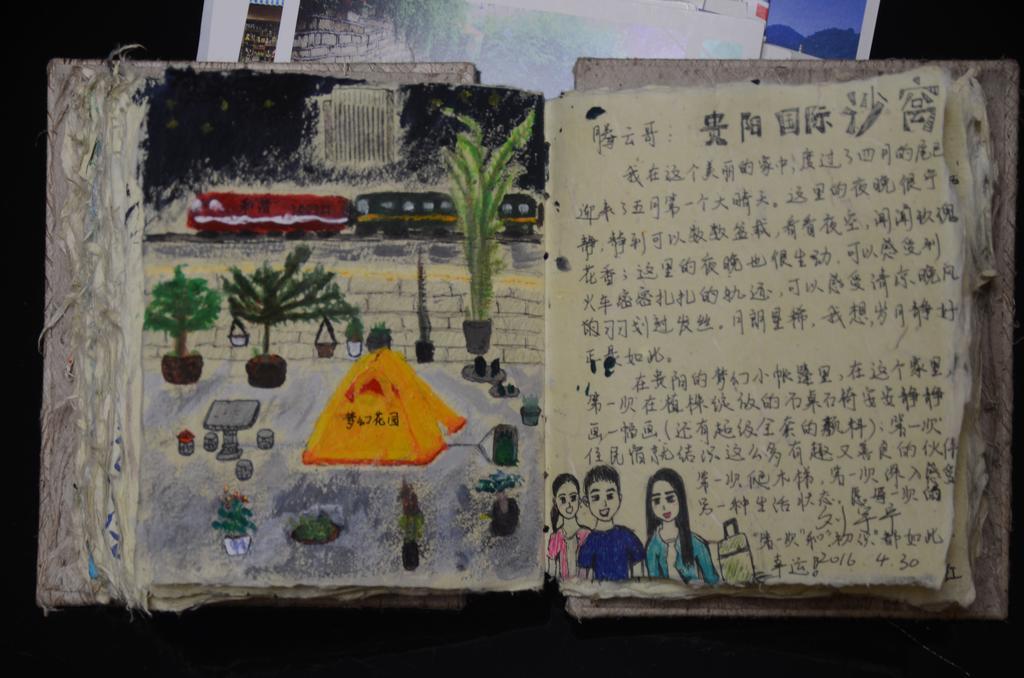 梦幻花园
贵阳国际沙窝
腾云哥：
我在这个美丽的家中，度过了四月的尾巴
迎来了五月第一个大晴天。这里的夜晚很宁
静，静到可以数数盆栽，看看夜空，闻闻玫瑰
花香；这里的夜晚也很生动，可以感受到
火车嘻嘻扎扎的轨迹，可以感受清凉晚风
的习习划过发丝。月朗星稀，我想，岁月静好
正是如此。
在贵阳的梦幻小帐篷里，在这个家里，
第一次在植株绽放的石桌石椅安安静静
画一幅画（还有超级全套的颜料）；第一次
住民宿就结识这么多有趣又善良的伙伴
第一次爬木梯，第一次深入感受
另一种生活状态，愿每一次的
"第一次"和"初识"都如此
幸运！2016 4.30